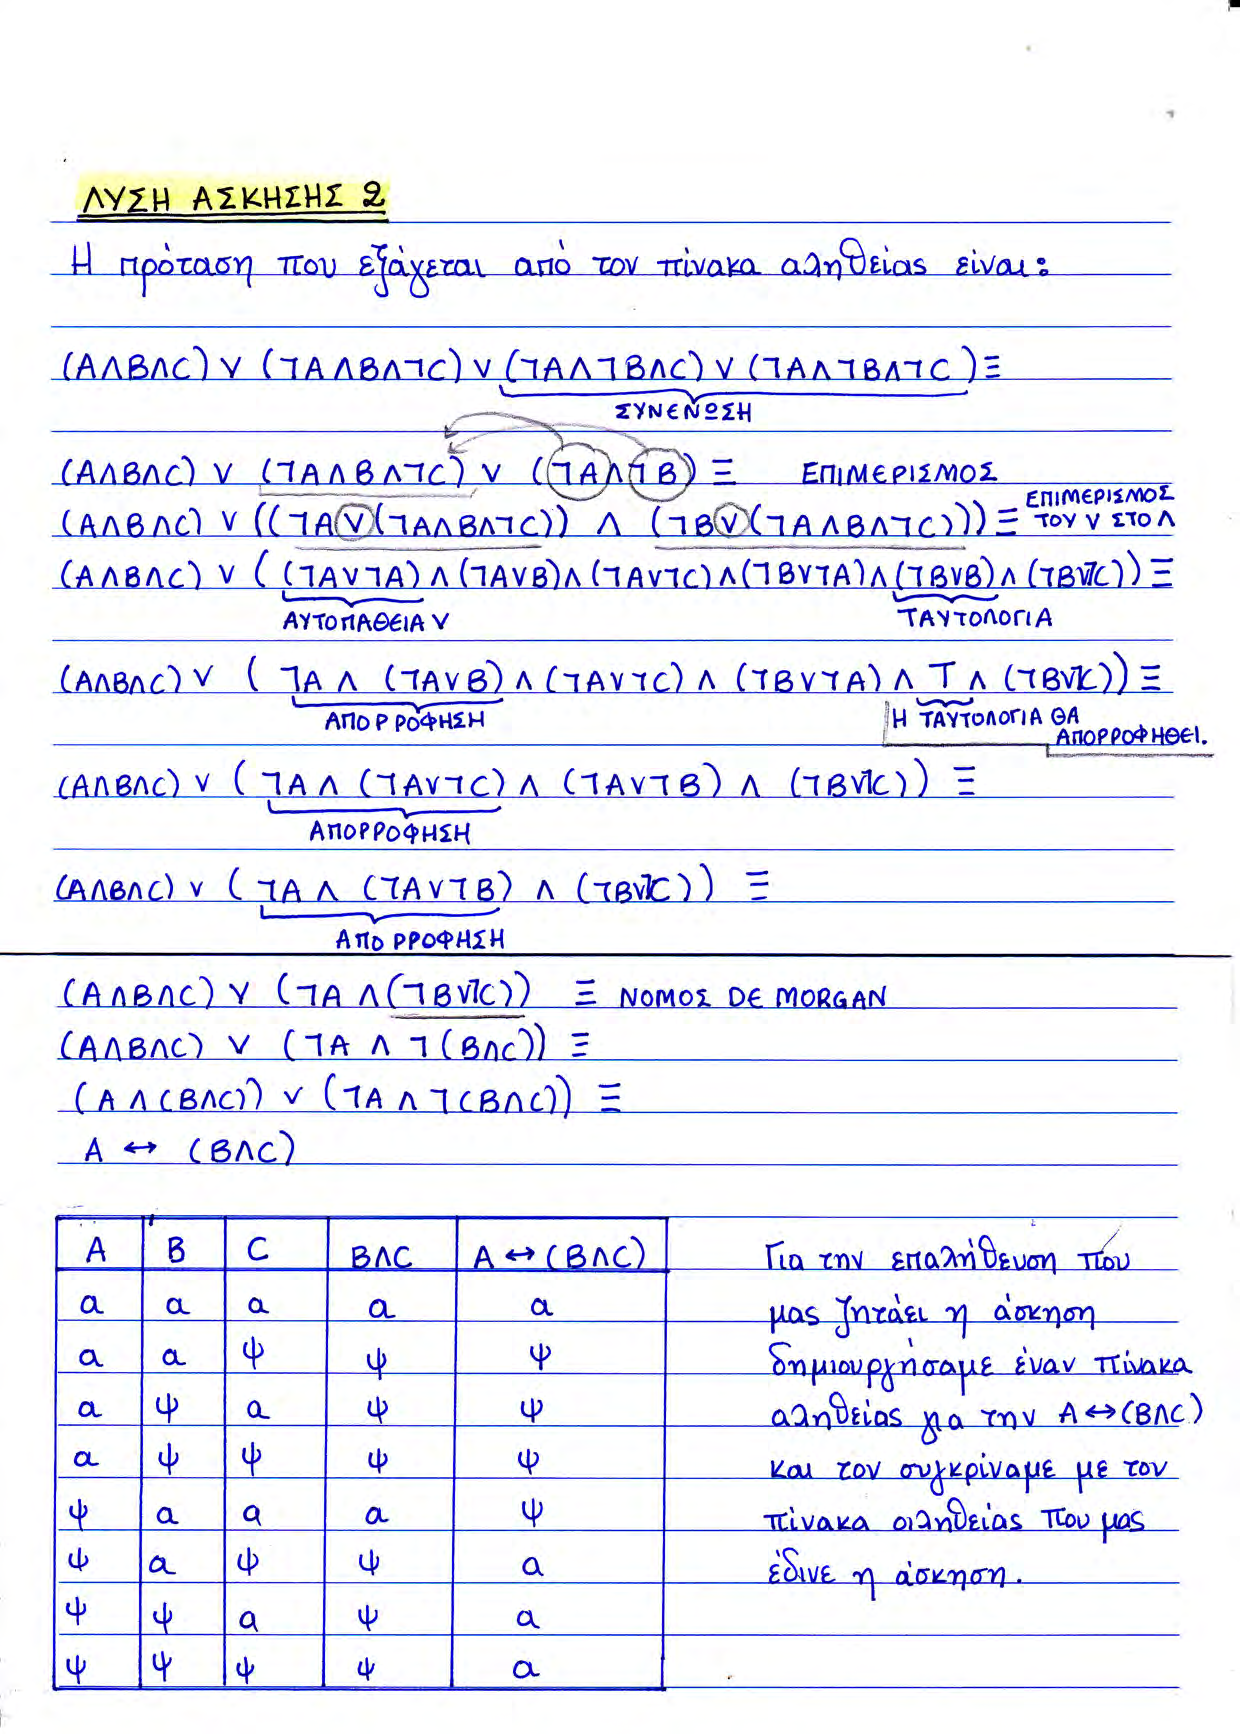 ΛΥΣΗ ΑΣΚΗΣΗΣ 2
Η πρόταση που εξάγεται από τον πίνακα αληθείας είναι:
(A∧B∧C) ∨ (¬A∧B∧¬C) ∨ (¬A∧¬B∧C) ∨ (¬A∧¬B∧¬C) ≡
ΣΥΝΕΝΩΣΗ
(A∧B∧C) ∨ (¬A∧B∧¬C) ∨ (¬A∧¬B) ≡ ΕΠΙΜΕΡΙΣΜΟΣ
(A∧B∧C) ∨ ((¬A∨(¬A∧B∧¬C)) ∧ (¬B∨(¬A∧B∧¬C))) ≡ ΕΠΙΜΕΡΙΣΜΟΣ ΤΟΥ ∨ ΣΤΟ ∧
(A∧B∧C) ∨ ((¬A∨¬A)∧(¬A∨B)∧(¬A∨¬C)∧(¬B∨¬A)∧(¬B∨B)∧(¬B∨¬C)) ≡
ΑΥΤΟΠΑΘΕΙΑ ∨ ΤΑΥΤΟΛΟΓΙΑ
(A∧B∧C) ∨ (¬A ∧ (¬A∨B) ∧ (¬A∨¬C) ∧ (¬B∨¬A) ∧ T ∧ (¬B∨¬C)) ≡
ΑΠΟΡΡΟΦΗΣΗ Η ΤΑΥΤΟΛΟΓΙΑ ΘΑ
ΑΠΟΡΡΟΦΗΘΕΙ.
(A∧B∧C) ∨ (¬A ∧ (¬A∨¬C) ∧ (¬A∨¬B) ∧ (¬B∨¬C)) ≡
ΑΠΟΡΡΟΦΗΣΗ
(A∧B∧C) ∨ (¬A ∧ (¬A∨¬B) ∧ (¬B∨¬C)) ≡
ΑΠΟΡΡΟΦΗΣΗ
(A∧B∧C) ∨ (¬A ∧(¬B∨¬C)) ≡ ΝΟΜΟΣ DE MORGAN
(A∧B∧C) ∨ (¬A ∧ ¬(B∧C)) ≡
(A ∧ (B∧C)) ∨ (¬A ∧ ¬(B∧C)) ≡
A ↔ (B∧C)
A B C B∧C A↔(B∧C)
α α α α α
α α ψ ψ ψ
α ψ α ψ ψ
α ψ ψ ψ ψ
ψ α α α ψ
ψ α ψ ψ α
ψ ψ α ψ α
ψ ψ ψ ψ α
Για την επαλήθευση που
μας ζητάει η άσκηση
δημιουργήσαμε έναν πίνακα
αληθείας για την A↔(B∧C)
και τον συγκρίναμε με τον
πίνακα αληθείας που μας
έδινε η άσκηση.